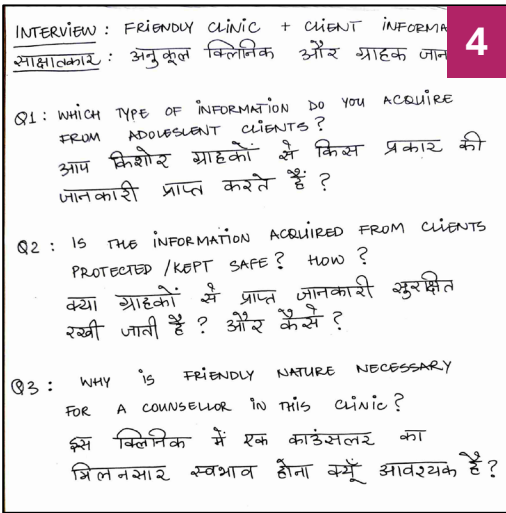 INTERVIEW : FRIENDLY CLINIC + CLIENT INFORMA
4
साक्षात्कार : अनुकूल क्लिनिक और ग्राहक जान
Q1 : WHICH TYPE OF INFORMATION DO YOU ACQUIRE
FROM ADOLESLENT CLIENTS?
आप किशोर ग्राहकों से किस प्रकार की
जानकारी प्राप्त करते हैं ?
Q2 : IS THE INFORMATION ACQUIRED FROM CLIENTS
PROTECTED /KEPT SAFE? HOW ?
क्या ग्राहकों से प्राप्त जानकारी सुरक्षित
रखी जाती है ? और कैसे ?
Q3 : WHY IS FRIENDLY NATURE NECESSARY
FOR A COUNSELLOR IN THIS CLINIC?
इस क्लिनिक में एक काउंसलर का
मिलनसार स्वभाव होना क्यूँ आवश्यक है ?